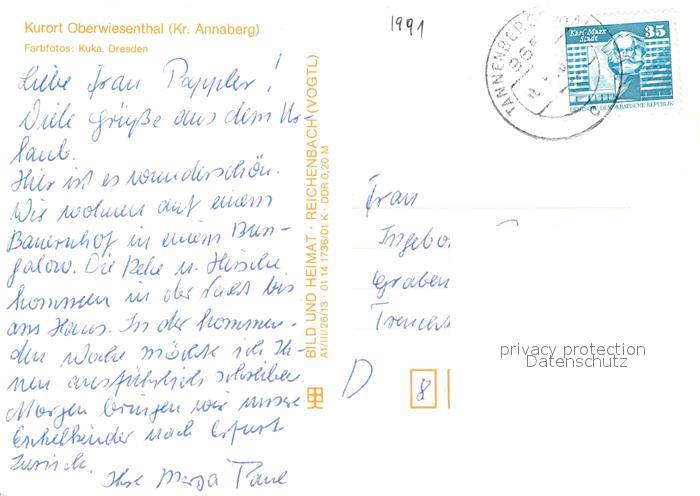 Kurort Oberwiesenthal (Kr. Annaberg)
Farbfotos: Kuka, Dresden
Liebe Frau Pappler!
Viele Grüße aus dem Ur-
laub.
Hier ist es wunderschön.
Wir wohnen auf einem
Bauernhof in einem Bun-
galow. Die Rehe u. Hirsche
kommen in der Nacht bis
ans Haus. In der kommen-
den Woche möchte ich Ih-
nen ausführlich schreiben.
Morgen bringen wir unsere
Enkelkinder nach Erfurt
zurück.
Ihre
BILD UND HEIMAT · REICHENBACH (VOGTL)
A1/III/26/13 · 01 14 1736/01 K · DDR 0,20 M
1991
TANNENBERG
Karl-Marx-
Stadt
35
DEUTSCHE DEMOKRATISCHE REPUBLIK
Frau
Ingebo
Graben
D
8
privacy protection
Datenschutz